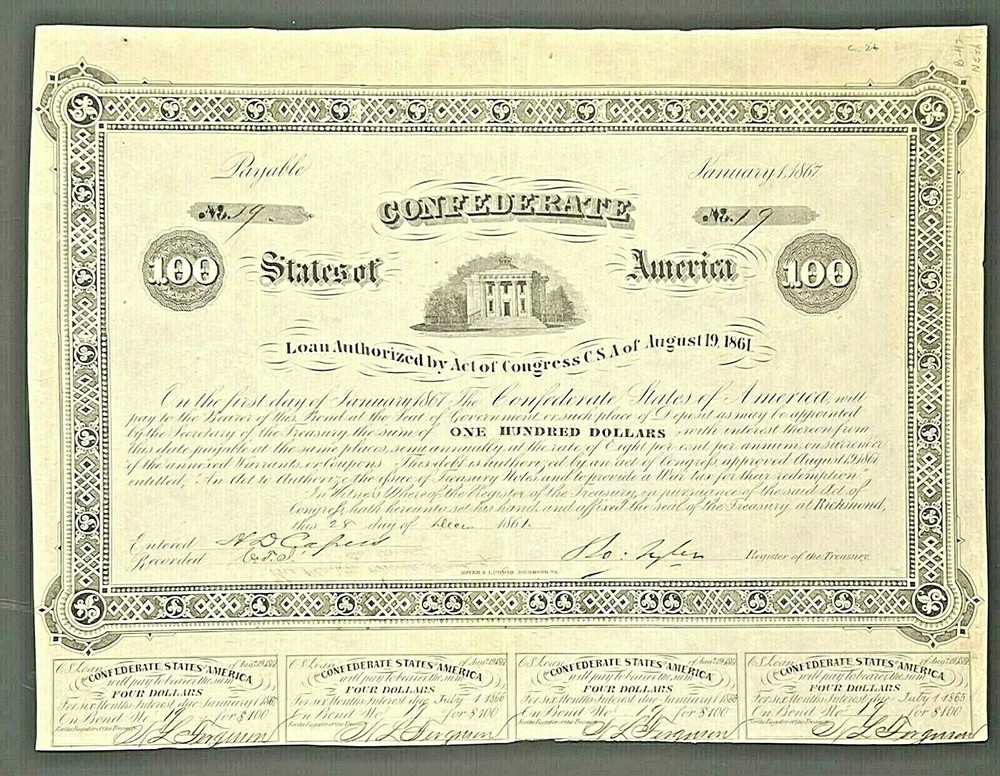 B-42
Payable January 1, 1867
No. 19 CONFEDERATE No. 19
100 States of America 100
Loan Authorized by Act of Congress C S A of August 19, 1861
On the first day of January 1867 The Confederate States of America will
pay to the Bearer of this Bond at the Seat of Government or such place of Deposit as may be appointed
by the Secretary of the Treasury the sum of ONE HUNDRED DOLLARS with interest thereon from
this date payable at the same places, semi annually at the rate of Eight per cent per annum, on surrender
of the annexed Warrants, or Coupons. This debt is authorized by an act of Congress approved August 19 1861
entitled, "An Act to Authorize the issue of Treasury Notes and to provide a War tax for their redemption"
In Witness Whereof the Register of the Treasury, in pursuance of the said Act of
Congress hath hereunto set his hand, and affixed the seal of the Treasury at Richmond,
this 28 day of 1861.
Entered Ro: Tyler Register of the Treasury
Recorded
HOYER & LUDWIG RICHMOND VA.
C S Loan of Aug. 19 1861 C S Loan of Aug. 19 1861 C S Loan of Aug. 19 1861 C S Loan of Aug. 19 1861
CONFEDERATE STATES AMERICA CONFEDERATE STATES AMERICA CONFEDERATE STATES AMERICA CONFEDERATE STATES AMERICA
will pay to bearer the sum will pay to bearer the sum will pay to bearer the sum will pay to bearer the sum
FOUR DOLLARS FOUR DOLLARS FOUR DOLLARS FOUR DOLLARS
For six Months Interest due January 1 For six Months Interest due July 1 1866 For six Months Interest due January 1 1866 For six Months Interest due July 1 1865
On Bond No. 19 for $100 On Bond No. for $100 On Bond No. for $100 On Bond No. for $100
For the Register of the Treasury For the Register of the Treasury For the Register of the Treasury For the Register of the Treasury
Ferguson Ferguson Ferguson Ferguson